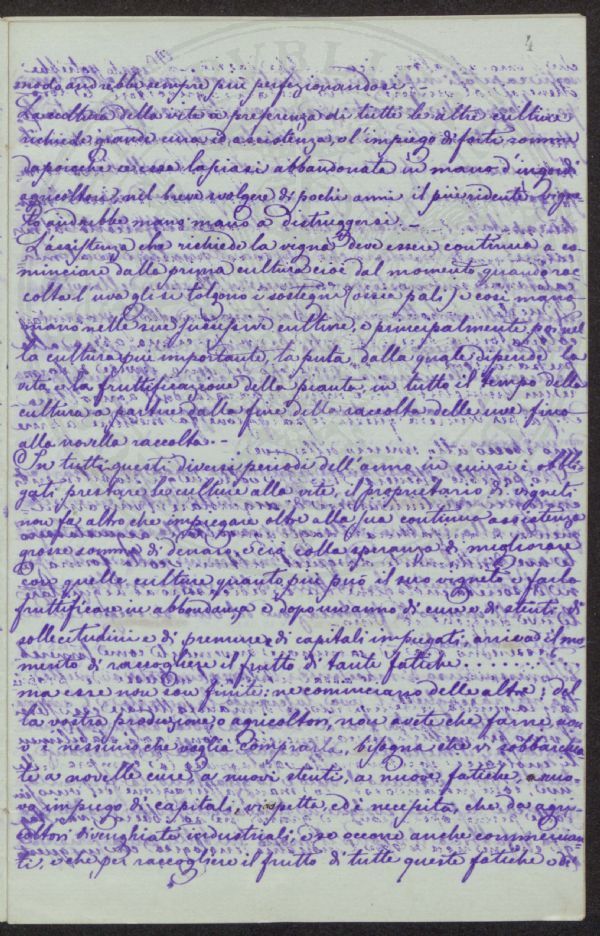 4
modo andrebbe sempre più perfezionandosi. –
La coltura della vite a preferenza di tutte le altre culture
richiede grande cura ed assistenza, e l'impiego di forti somme
dapoicchè se essa lasciasi abbandonata in mano d'ingordi
agricoltori, nel breve svolgere di pochi anni il più ridente vigne-
to andrebbe mano mano a distruggersi. –
L'assistenza che richiede la vigna deve essere continua a co-
minciare dalla prima cultura cioè dal momento quando rac-
colta l'uva gli si tolgono i sostegni (ossia pali) e così mano
mano nelle sue successive culture, e principalmente poi nel
la cultura più importante, la puta, dalla quale dipende la
vita e la fruttificazione della pianta, in tutto il tempo della
cultura a partire dalla fine della raccolta delle uve fino
alla novella raccolta. –
In tutti questi diversi periodi dell'anno in cui si è obbli-
gati prestare le culture alla vite, il proprietario di vigneti
non fa altro che impiegare oltre alla sua continua assistenza
grosse somme di denaro, e ciò colla speranza di migliorare
con quelle culture quanto più può il suo vigneto e farlo
fruttificare in abbondanza e dopo un anno di cure e di stenti, di
sollecitudini e di premure, di capitali impiegati, arriva il mo
mento di raccogliere il frutto di tante fatiche........
ma esse non son finite: ne cominciano delle altre; del
la vostra produzione, o agricoltori, non avete che farne non
v'è nessuno che voglia comprarla, bisogna che vi sobbarchia
te a novelle cure, a nuovi stenti, a nuove fatiche, a nuo-
vo impiego di capitali, vi spetta, ed è necessità, che da agri-
coltori divenghiate industriali, e se occorre anche commercian-
ti, e che per raccogliere il frutto di tutte queste fatiche e di